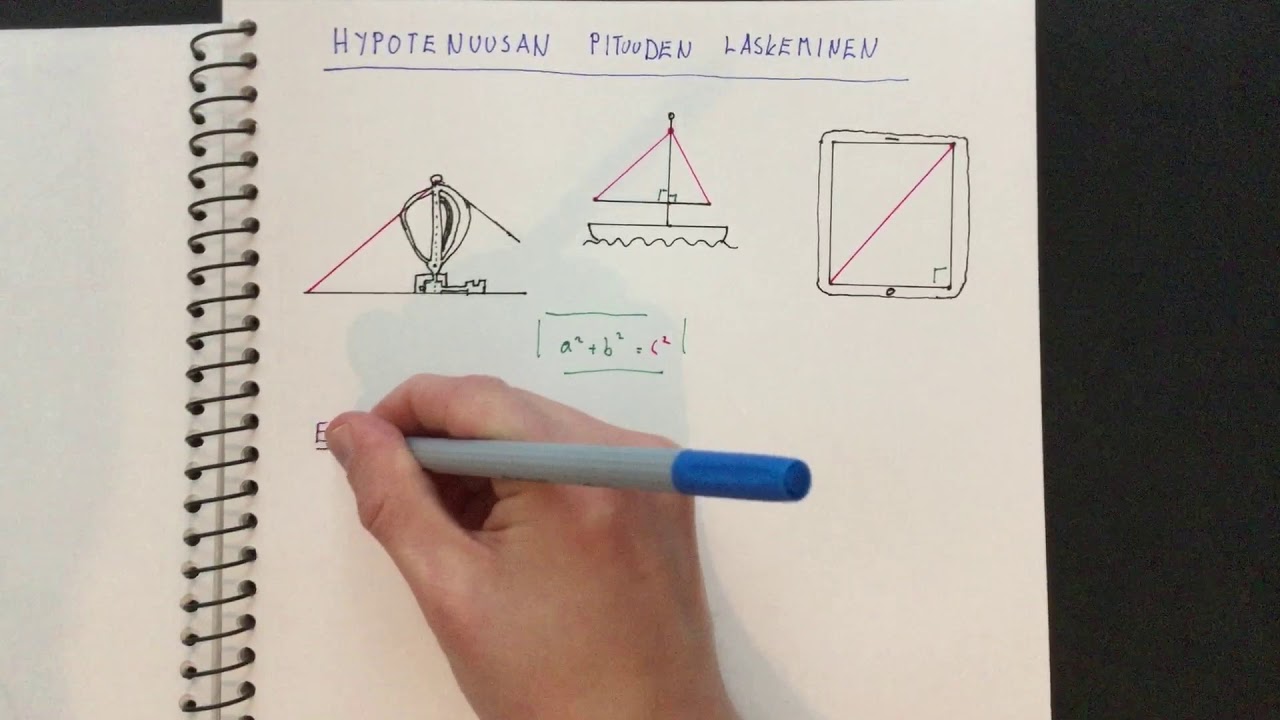 HYPOTENUUSAN PITUUDEN LASKEMINEN
a² + b² = c²
E